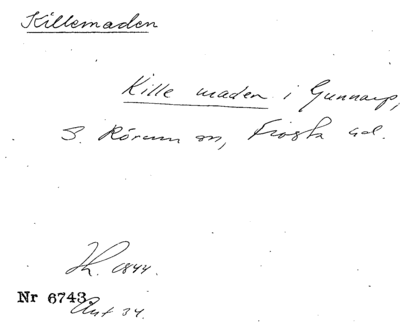 Killemaden
Kille maden i Gunnarp,
S. Rörum sn, Frosta hd.
Th. 1844.
Nr 6743.
Ant 34.